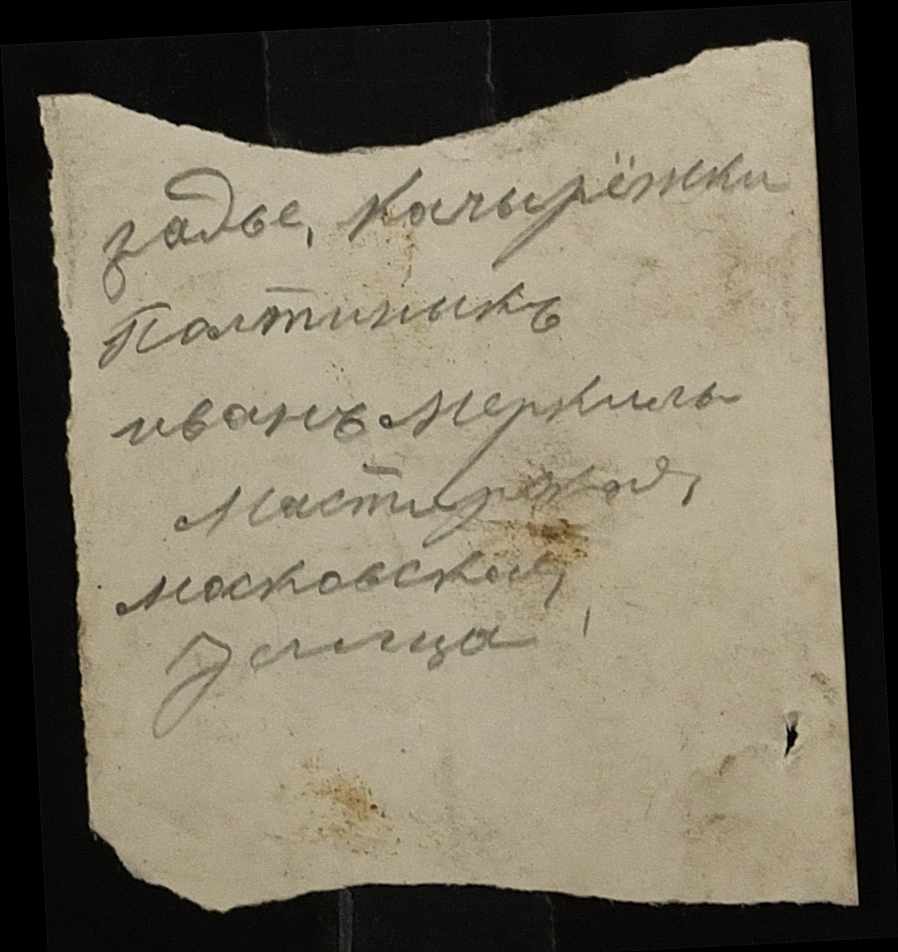 задье, Качырёжки
Полтиныкъ
иванъ Меркиль
Мастирская,
московская,
Улица